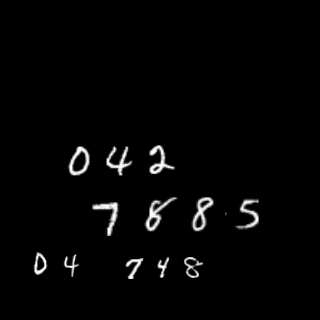 042
7885
04 748